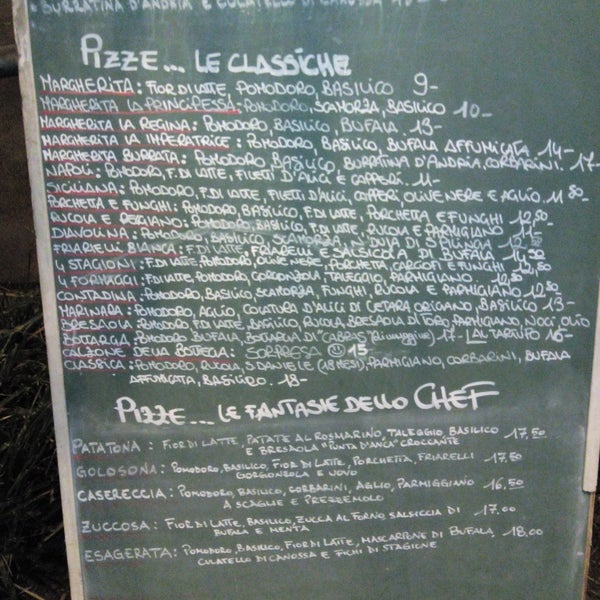 BURRATINA D'ANDRIA E CULATELLO DI CANOSSA
PIZZE... LE CLASSICHE
MARGHERITA: FIOR DI LATTE, POMODORO, BASILICO 9-
MARGHERITA LA PRINCIPESSA: POMODORO, SCAMORZA, BASILICO 10-
MARGHERITA LA REGINA: POMODORO, BASILICO, BUFALA 13-
MARGHERITA LA IMPERATRICE: POMODORO, BASILICO, BUFALA AFFUMICATA 14-
MARGHERITA BURRATA: POMODORO BASILICO, BURRATINA D'ANDRIA, CORBARINI. 17-
NAPOLI: POMODORO, F. DI LATTE, FILETTI D'ALICI E CAPPERI. 11-
SICILIANA: POMODORO, F. DI LATTE, FILETTI D'ALICI, CAPPERI, OLIVE NERE E AGLIO 11,50-
PORCHETTA E FUNGHI: POMODORO, BASILICO, F. DI LATTE, PORCHETTA E FUNGHI 12,50
RUCOLA E REGGIANO: POMODORO, BASILICO, F. DI LATTE, RUCOLA E PARMIGIANO 11-
DIAVOLINA: POMODORO, BASILICO, SCAMORZA, N'DUIA DI SPILINGA 12,50
FRIARIELLI BIANCA: F. DI LATTE, FRIARIELLI E SALSICCIA DI BUFALA 14,50
4 STAGIONI: F. DI LATTE, POMODORO, OLIVE NERE, PORCHETTA, CARCIOFI E FUNGHI 12,50
4 FORMAGGI: F. DI LATTE, POMODORO, GORGONZOLA, TALEGGIO, PARMIGIANO 12,50
CONTADINA: POMODORO, BASILICO, SCAMORZA, FUNGHI, RUCOLA E PARMIGIANO 12,50
MARINARA: POMODORO, AGLIO, COLATURA D'ALICI DI CETARA ORIGANO, BASILICO 13-
BRESAOLA: POMODORO, F. DI LATTE, BASILICO, RUCOLA, BRESAOLA DI TORO, PARMIGIANO NOCI, OLIO
BOTTARGA: POMODORO BUFALA, BOTTARGA DI "CABRAS" (Muggine) 17- AL TARTUFO 16-
CALZONE DELLA BOTTEGA: SORPRESA 15
CLASSICA: POMODORO, RUCOLA, S. DANIELE (18 MESI), PARMIGIANO, CORBARINI, BUFALA
AFFUMICATA, BASILICO. 18-
PIZZE... LE FANTASIE DELLO CHEF
PATATONA: FIOR DI LATTE, PATATE AL ROSMARINO, TALEGGIO, BASILICO 17,50
E BRESAOLA "PUNTA D'ANCA" CROCCANTE
GOLOSONA: POMODORO, BASILICO, FIOR DI LATTE, PORCHETTA, FRIARELLI 17,50
GORGONZOLA E UOVO
CASERECCIA: POMODORO, BASILICO, CORBARINI, AGLIO, PARMIGGIANO 16,50
A SCAGLIE E PREZZEMOLO
ZUCCOSA: FIOR DI LATTE, BASILICO, ZUCCA AL FORNO, SALSICCIA DI 17,00
BUFALA E MENTA
ESAGERATA: POMODORO, BASILICO, FIOR DI LATTE, MASCARPONE DI BUFALA, 18,00
CULATELLO DI CANOSSA E FICHI DI STAGIONE